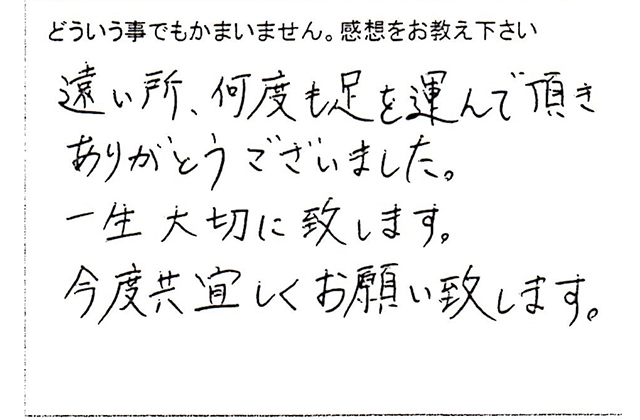 どういう事でもかまいません。感想をお教え下さい
遠い所、何度も足を運んで頂き
ありがとうございました。
一生大切に致します。
今度共宜しくお願い致します。